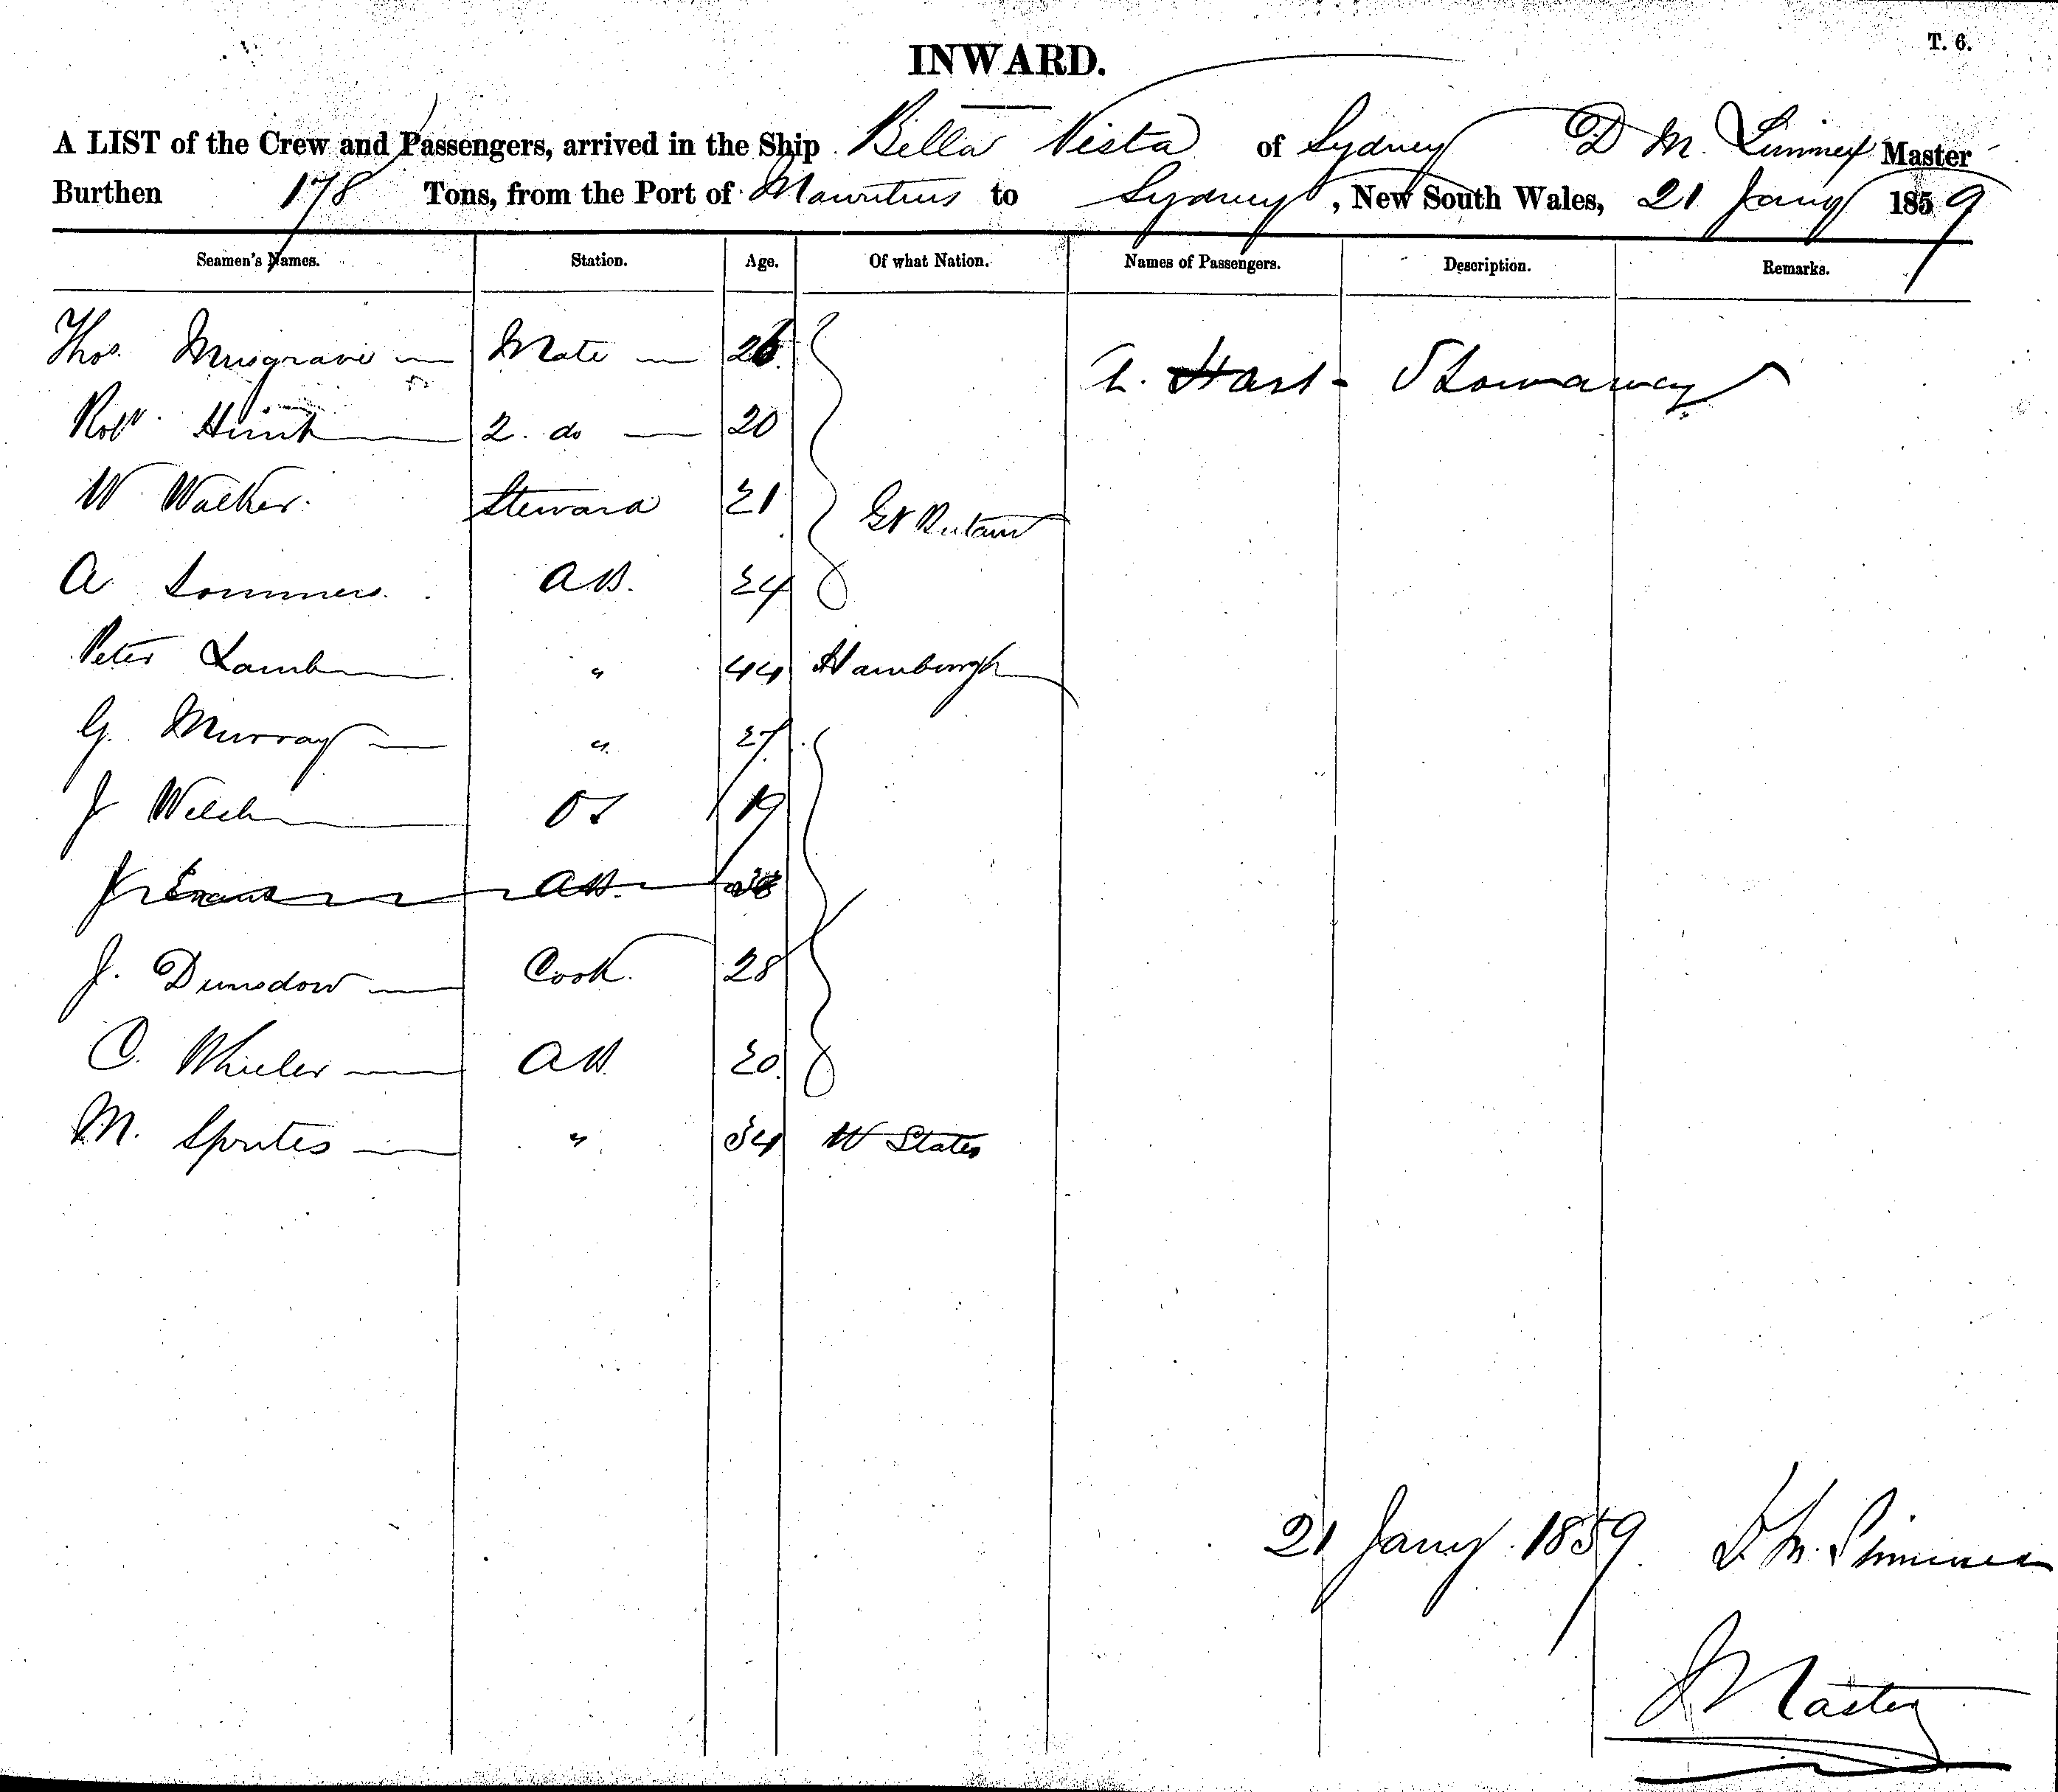 T. 6.
INWARD.
A LIST of the Crew and Passengers, arrived in the Ship Bella Vista of Sydney D M. Master
Burthen 178 Tons, from the Port of Mauritius to Sydney, New South Wales, 21 Jany 1859
Seamen's Names. Station. Age. Of what Nation. Names of Passengers. Description. Remarks.
Thos. Musgrave Mate 26 Hart - Stowaway
Robt. 2. do 20
W Walker. Steward 21 Gt Britain
A Sommers. AB. 24
Peter Lamb " 44 Hamburgh
G. Murray " 27
J Welch OS 19
J Evans AB.
J. Dunsdow Cook. 28
C. Wheeler AB 20
M. Sprites " 34 U States
21 Jany. 1859 D. M.
Master